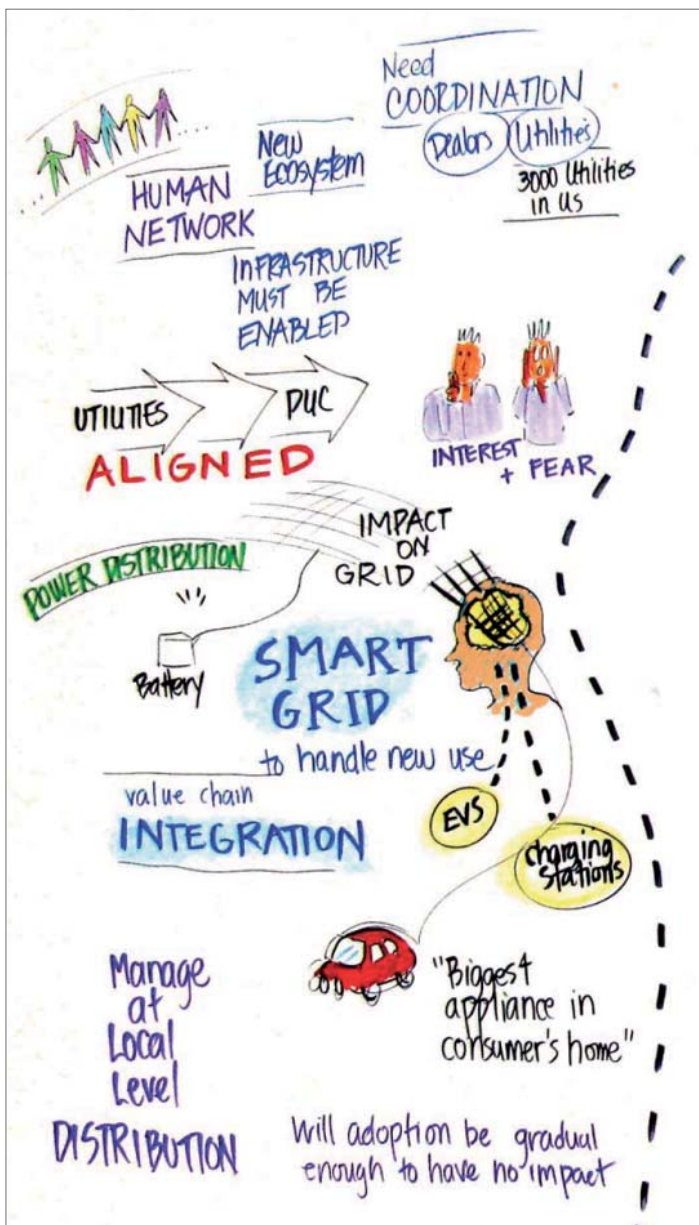 Need
COORDINATION
Dealers
Utilities
3000 Utilities
in US
New
Ecosystem
HUMAN
NETWORK
INFRASTRUCTURE
MUST BE
ENABLED
UTILITIES
PUC
ALIGNED
INTEREST
+ FEAR
IMPACT
ON
GRID
POWER DISTRIBUTION
Battery
SMART
GRID
to handle new use
value chain
INTEGRATION
EVS
Charging
Stations
Manage
at
Local
Level
DISTRIBUTION
"Biggest
appliance in
consumer's home"
Will adoption be gradual
enough to have no impact